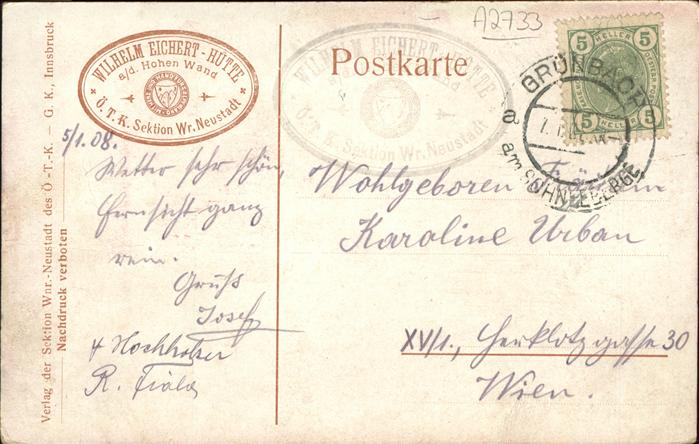 A2733
WILHELM EICHERT-HÜTTE
a/d. Hohen Wand
Ö. T. K. Sektion Wr. Neustadt
Postkarte
WILHELM EICHERT-HÜTTE
Ö. T. K. Sektion Wr. Neustadt
5 HELLER 5
5 HELLER 5
GRÜNBACH
am SCHNEEBERGE
a
5/1.08.
Wetter sehr schön,
Fernsicht ganz
rein.
Gruß
Josef
Hochholzer
R. Fiala
Wohlgeboren Fräulein
Karoline Urban
XV/1., Herklotzgasse 30
Wien.
Verlag der Sektion Wnr.-Neustadt des Ö.-T.-K. — G. K., Innsbruck
Nachdruck verboten